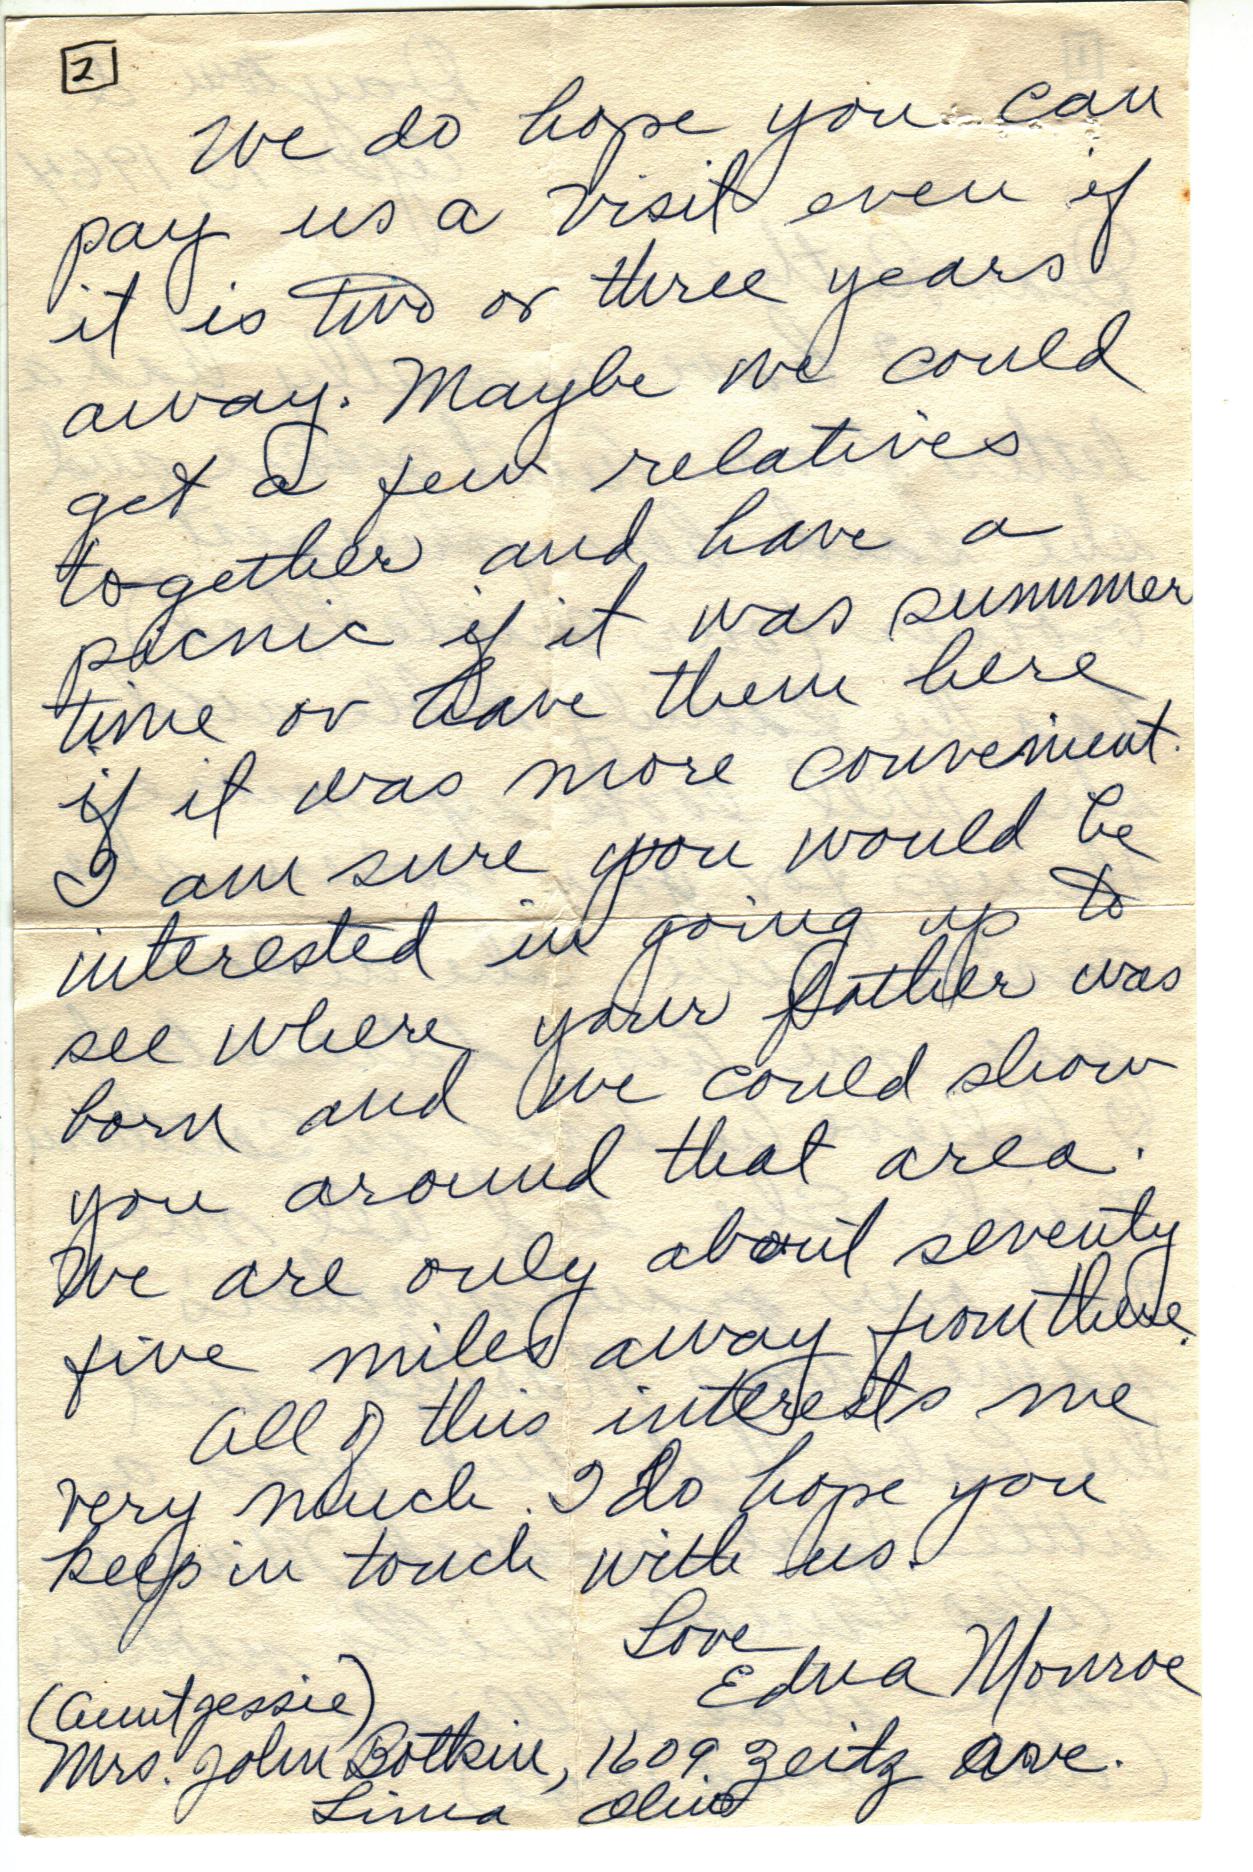 2
We do hope you can
pay us a visit even if
it is two or three years
away. Maybe we could
get a few relatives
together and have a
picnic if it was summer
time or have them here
if it was more convenient.
I am sure you would be
interested in going up to
see where your father was
born and we could show
you around that area.
We are only about seventy
five miles away from there.
All of this interests me
very much. I do hope you
keep in touch with us.
Love
Edna Monroe
(Aunt Jessie)
Mrs. John Botkin, 1609 Zeitz Ave.
Lima Ohio